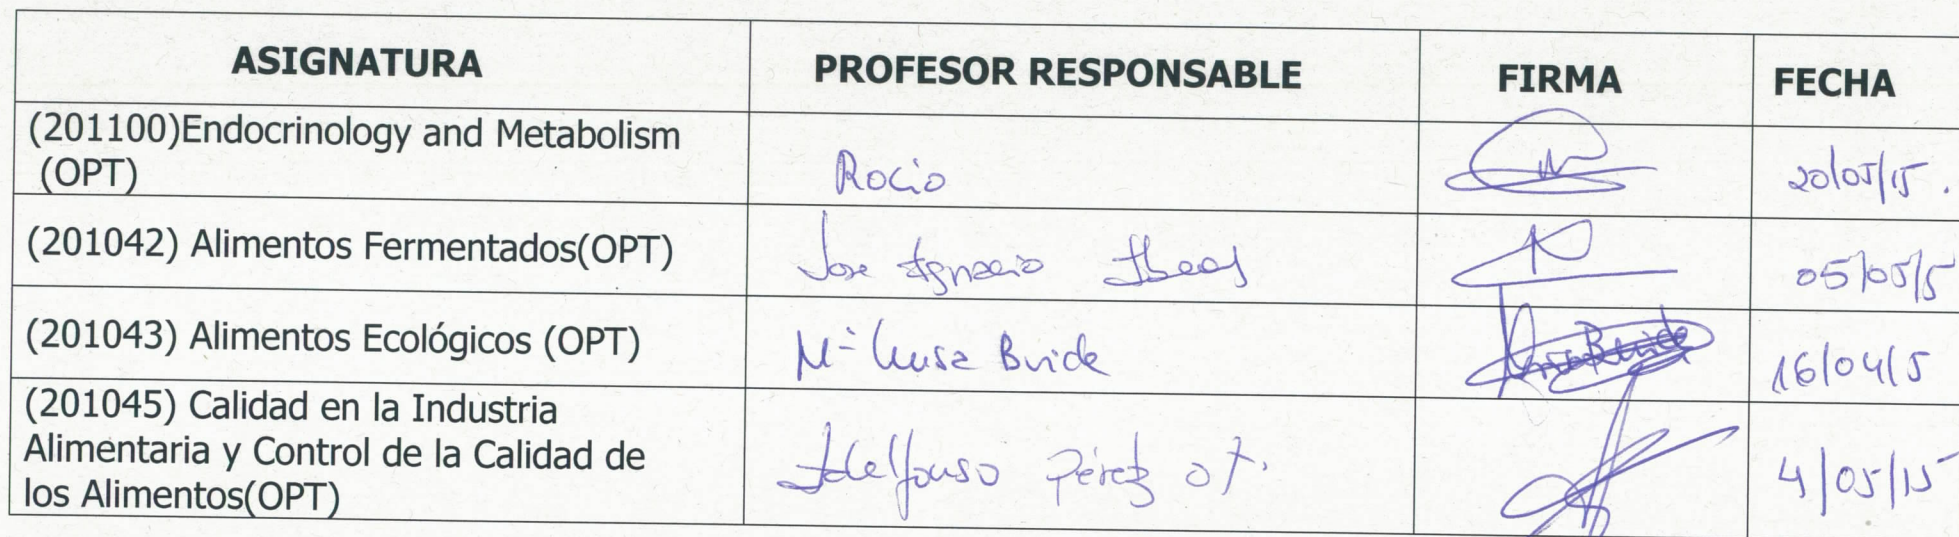 ASIGNATURA PROFESOR RESPONSABLE FIRMA FECHA
(201100)Endocrinology and Metabolism
(OPT) Rocio 20/05/15.
(201042) Alimentos Fermentados(OPT) Jose Ignacio Ibeas 05/05/5
(201043) Alimentos Ecológicos (OPT) Mª Luisa Buide 16/04/5
(201045) Calidad en la Industria
Alimentaria y Control de la Calidad de Idelfonso Pérez 4/05/15
los Alimentos(OPT)